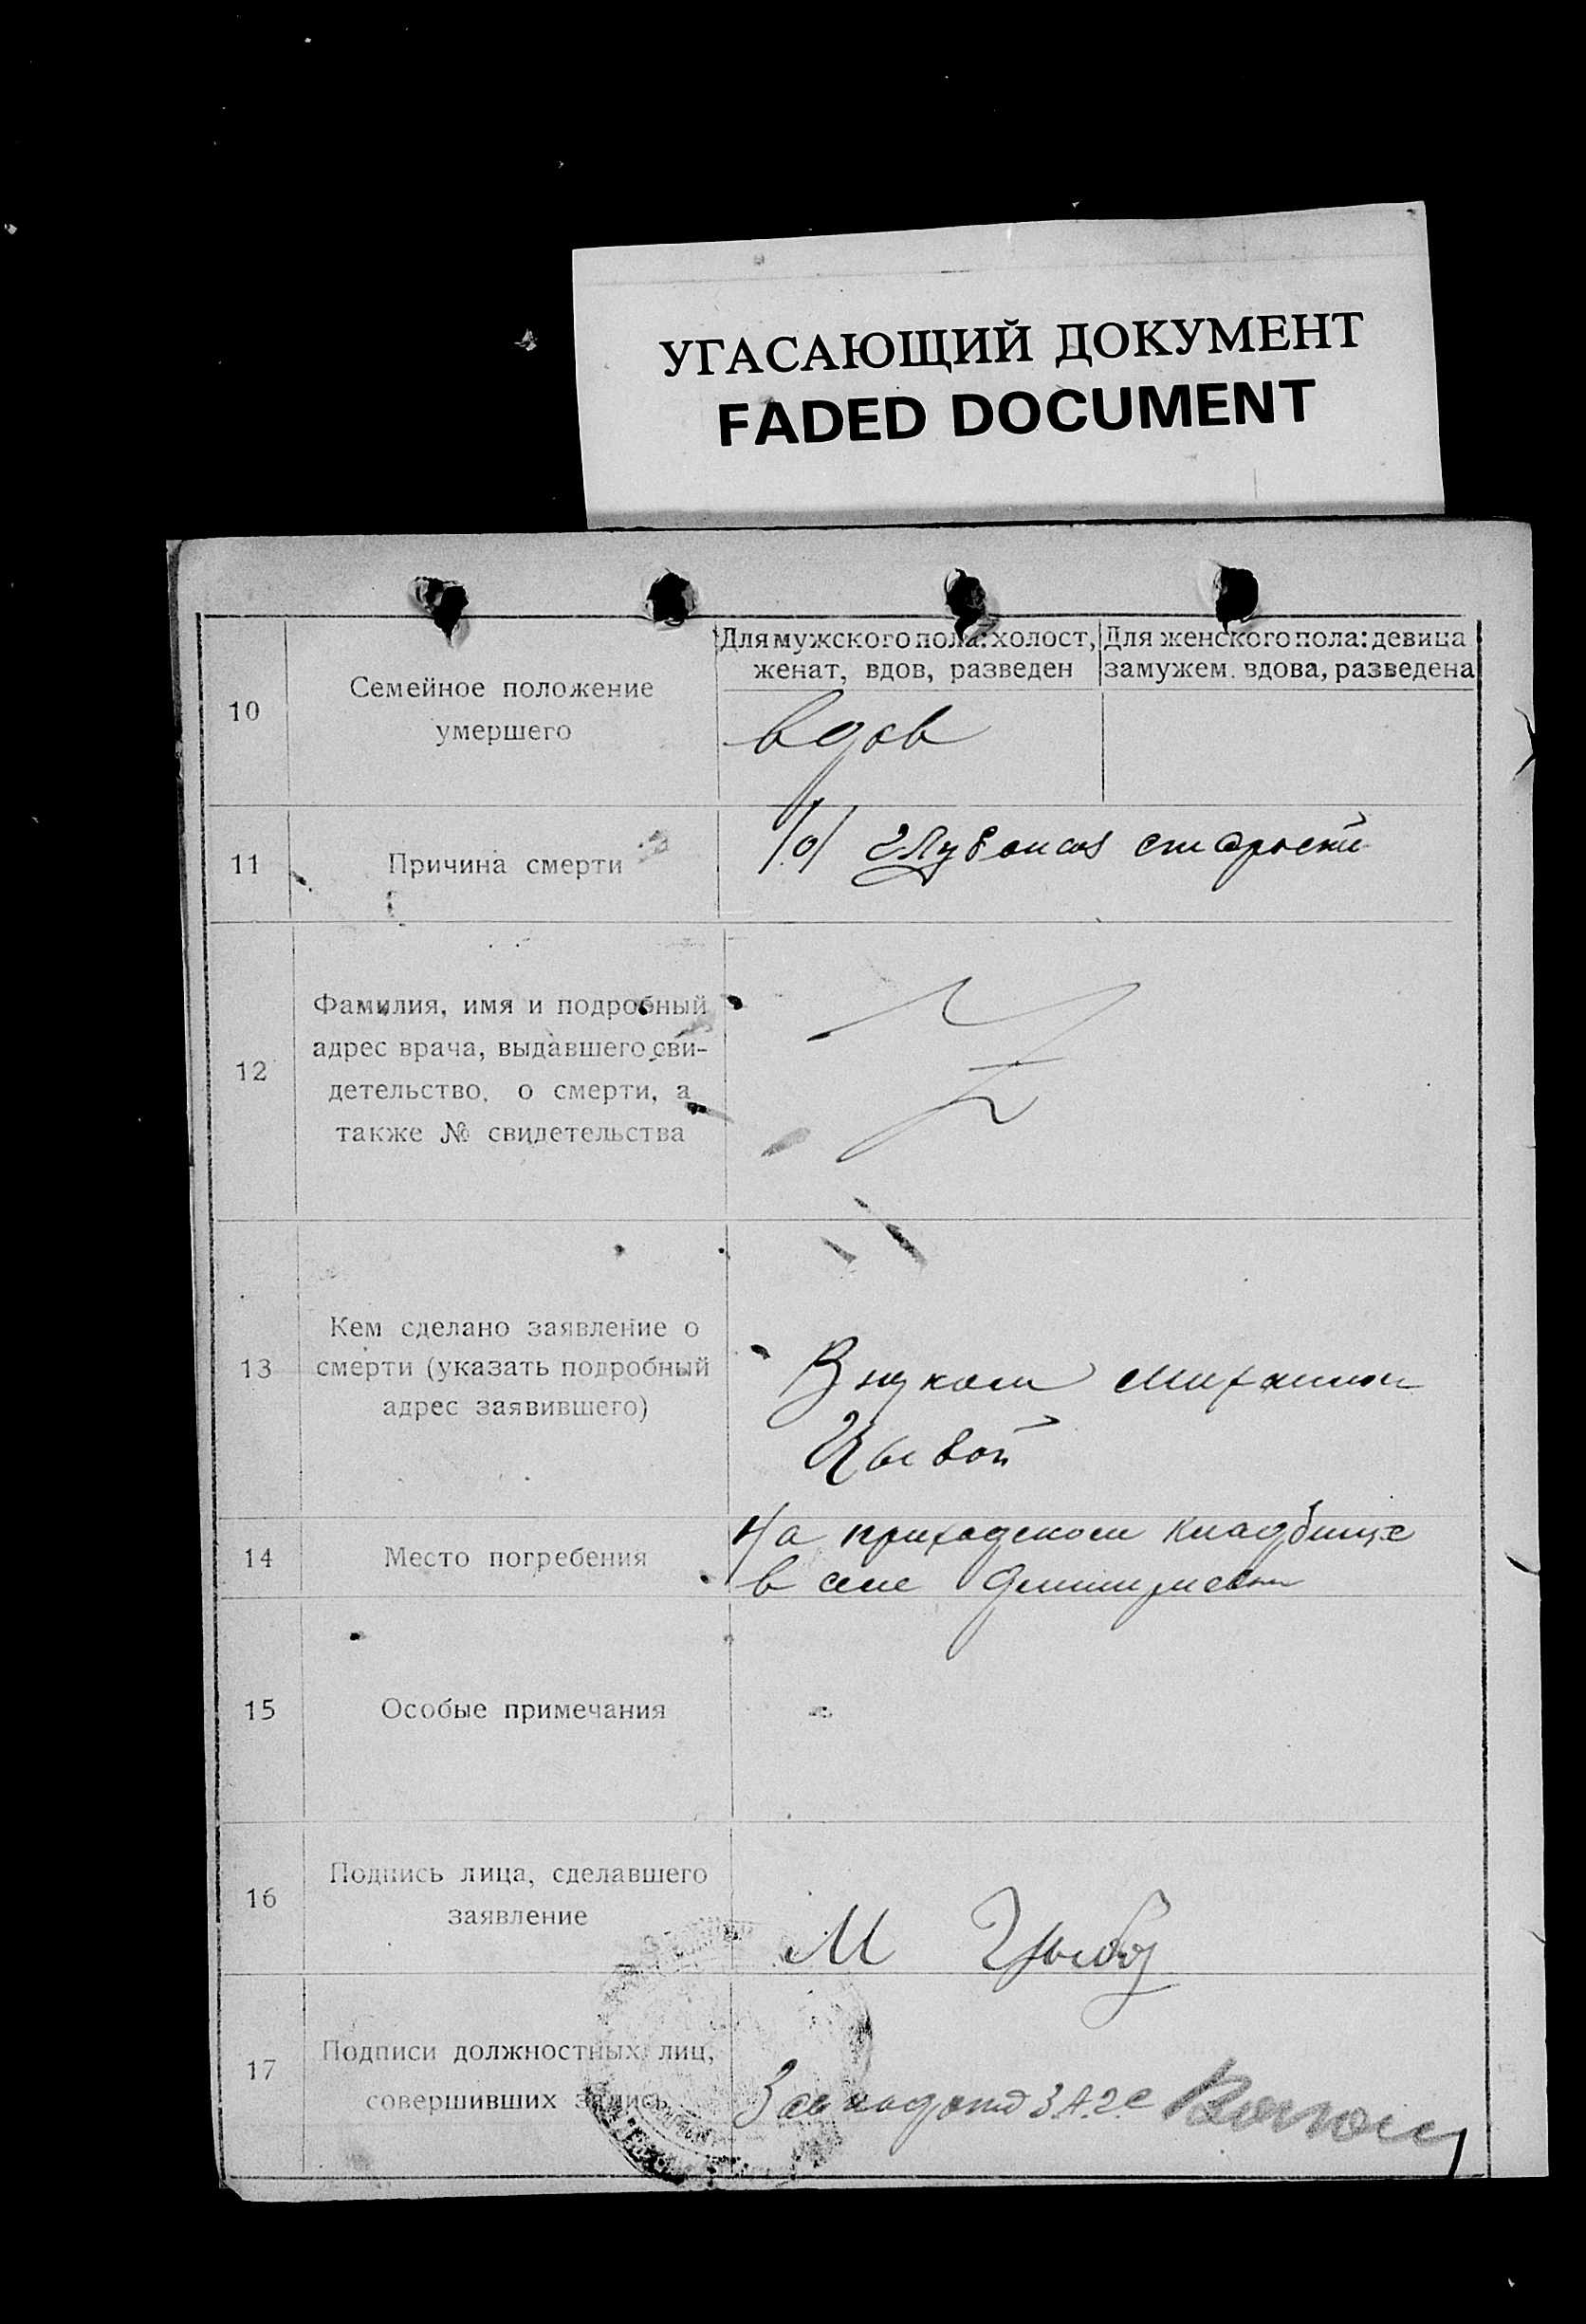 УГАСАЮЩИЙ ДОКУМЕНТ
FADED DOCUMENT
10
Семейное положение
умершего
Для мужского пола: холост,
женат, вдов, разведен
Для женского пола: девица
замужем. вдова, разведена
вдов
11
Причина смерти
старости
12
Фамилия, имя и подробный
адрес врача, выдавшего сви-
детельство, о смерти, а
также № свидетельства
13
Кем сделано заявление о
смерти (указать подробный
адрес заявившего)
Внуком
14
Место погребения
На приходском кладбище
в селе
15
Особые примечания
16
Подпись лица, сделавшего
заявление
М
17
Подписи должностных лиц,
совершивших запись